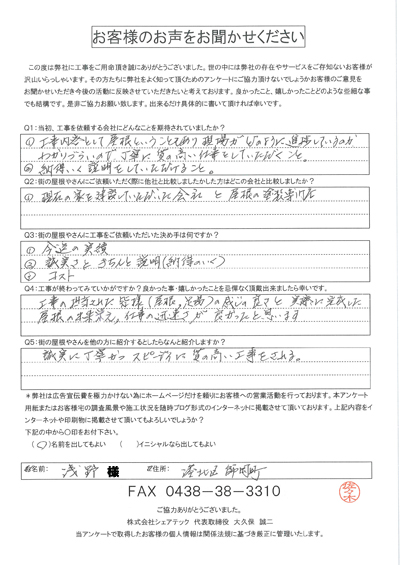 お客様のお声をお聞かせください
この度は弊社に工事をご用命頂き誠にありがとうございました。世の中には弊社の存在やサービスをご存知ないお客様が
沢山いらっしゃいます。その方たちに弊社をよく知って頂くためのアンケートにご協力頂けないでしょうかお客様のご意見を
お聞かせいただき今後の活動に反映させていただきたいと考えております。良かったこと、嬉しかったことどのような些細な事
でも結構です。是非ご協力お願い致します。出来るだけ具体的に書いて頂ければ幸いです。
Q1:当初、工事を依頼する会社にどんなことを期待されていましたか?
① 工事内容として屋根ということもあり現場がどのように進捗しているのか
わかりづらいので丁寧に質の高い仕事をしていただくこと。
② 納得いく説明をしていただけること。
Q2:街の屋根やさんにご依頼いただく際に他社と比較しましたかした方はどこの会社と比較しましたか?
① 現在の家を建設していただいた会社 と 屋根の塗装専門店
Q3:街の屋根やさんに工事をご依頼いただいた決め手は何ですか?
① 今迄の実績
② 誠実さときちんと説明(納得のいく)
③ コスト
Q4:工事が終わってみていかがですか?良かった事・嬉しかったことを忌憚なく頂戴出来ましたら幸いです。
工事の担当された皆様(屋根,足場)の感じの良さと実際に完成した
屋根の出来栄え,仕事の迅速さが良かったと思います
Q5:街の屋根やさんを他の方に紹介するとしたらなんと紹介しますか?
誠実に丁寧かつスピーディに質の高い工事をされる。
*弊社は広告宣伝費を極力かけない為にホームページだけを頼りにお客様への営業活動を行っております。本アンケート
用紙またはお客様宅の調査風景や施工状況を随時ブログ形式のインターネットに掲載させて頂いております。上記内容をイ
ンターネットや印刷物に掲載させて頂いてもよろしいでしょうか?
下記の中から○印をお付下さい。
(○)名前を出してもよい ( )イニシャルなら出してもよい
お名前: 浅野 様 ご住所: 港北区
FAX 0438-38-3310
佐々木
ご協力ありがとうございました。
株式会社シェアテック 代表取締役 大久保 誠二
当アンケートで取得したお客様の個人情報は関係法規に基づき厳正に管理いたします。